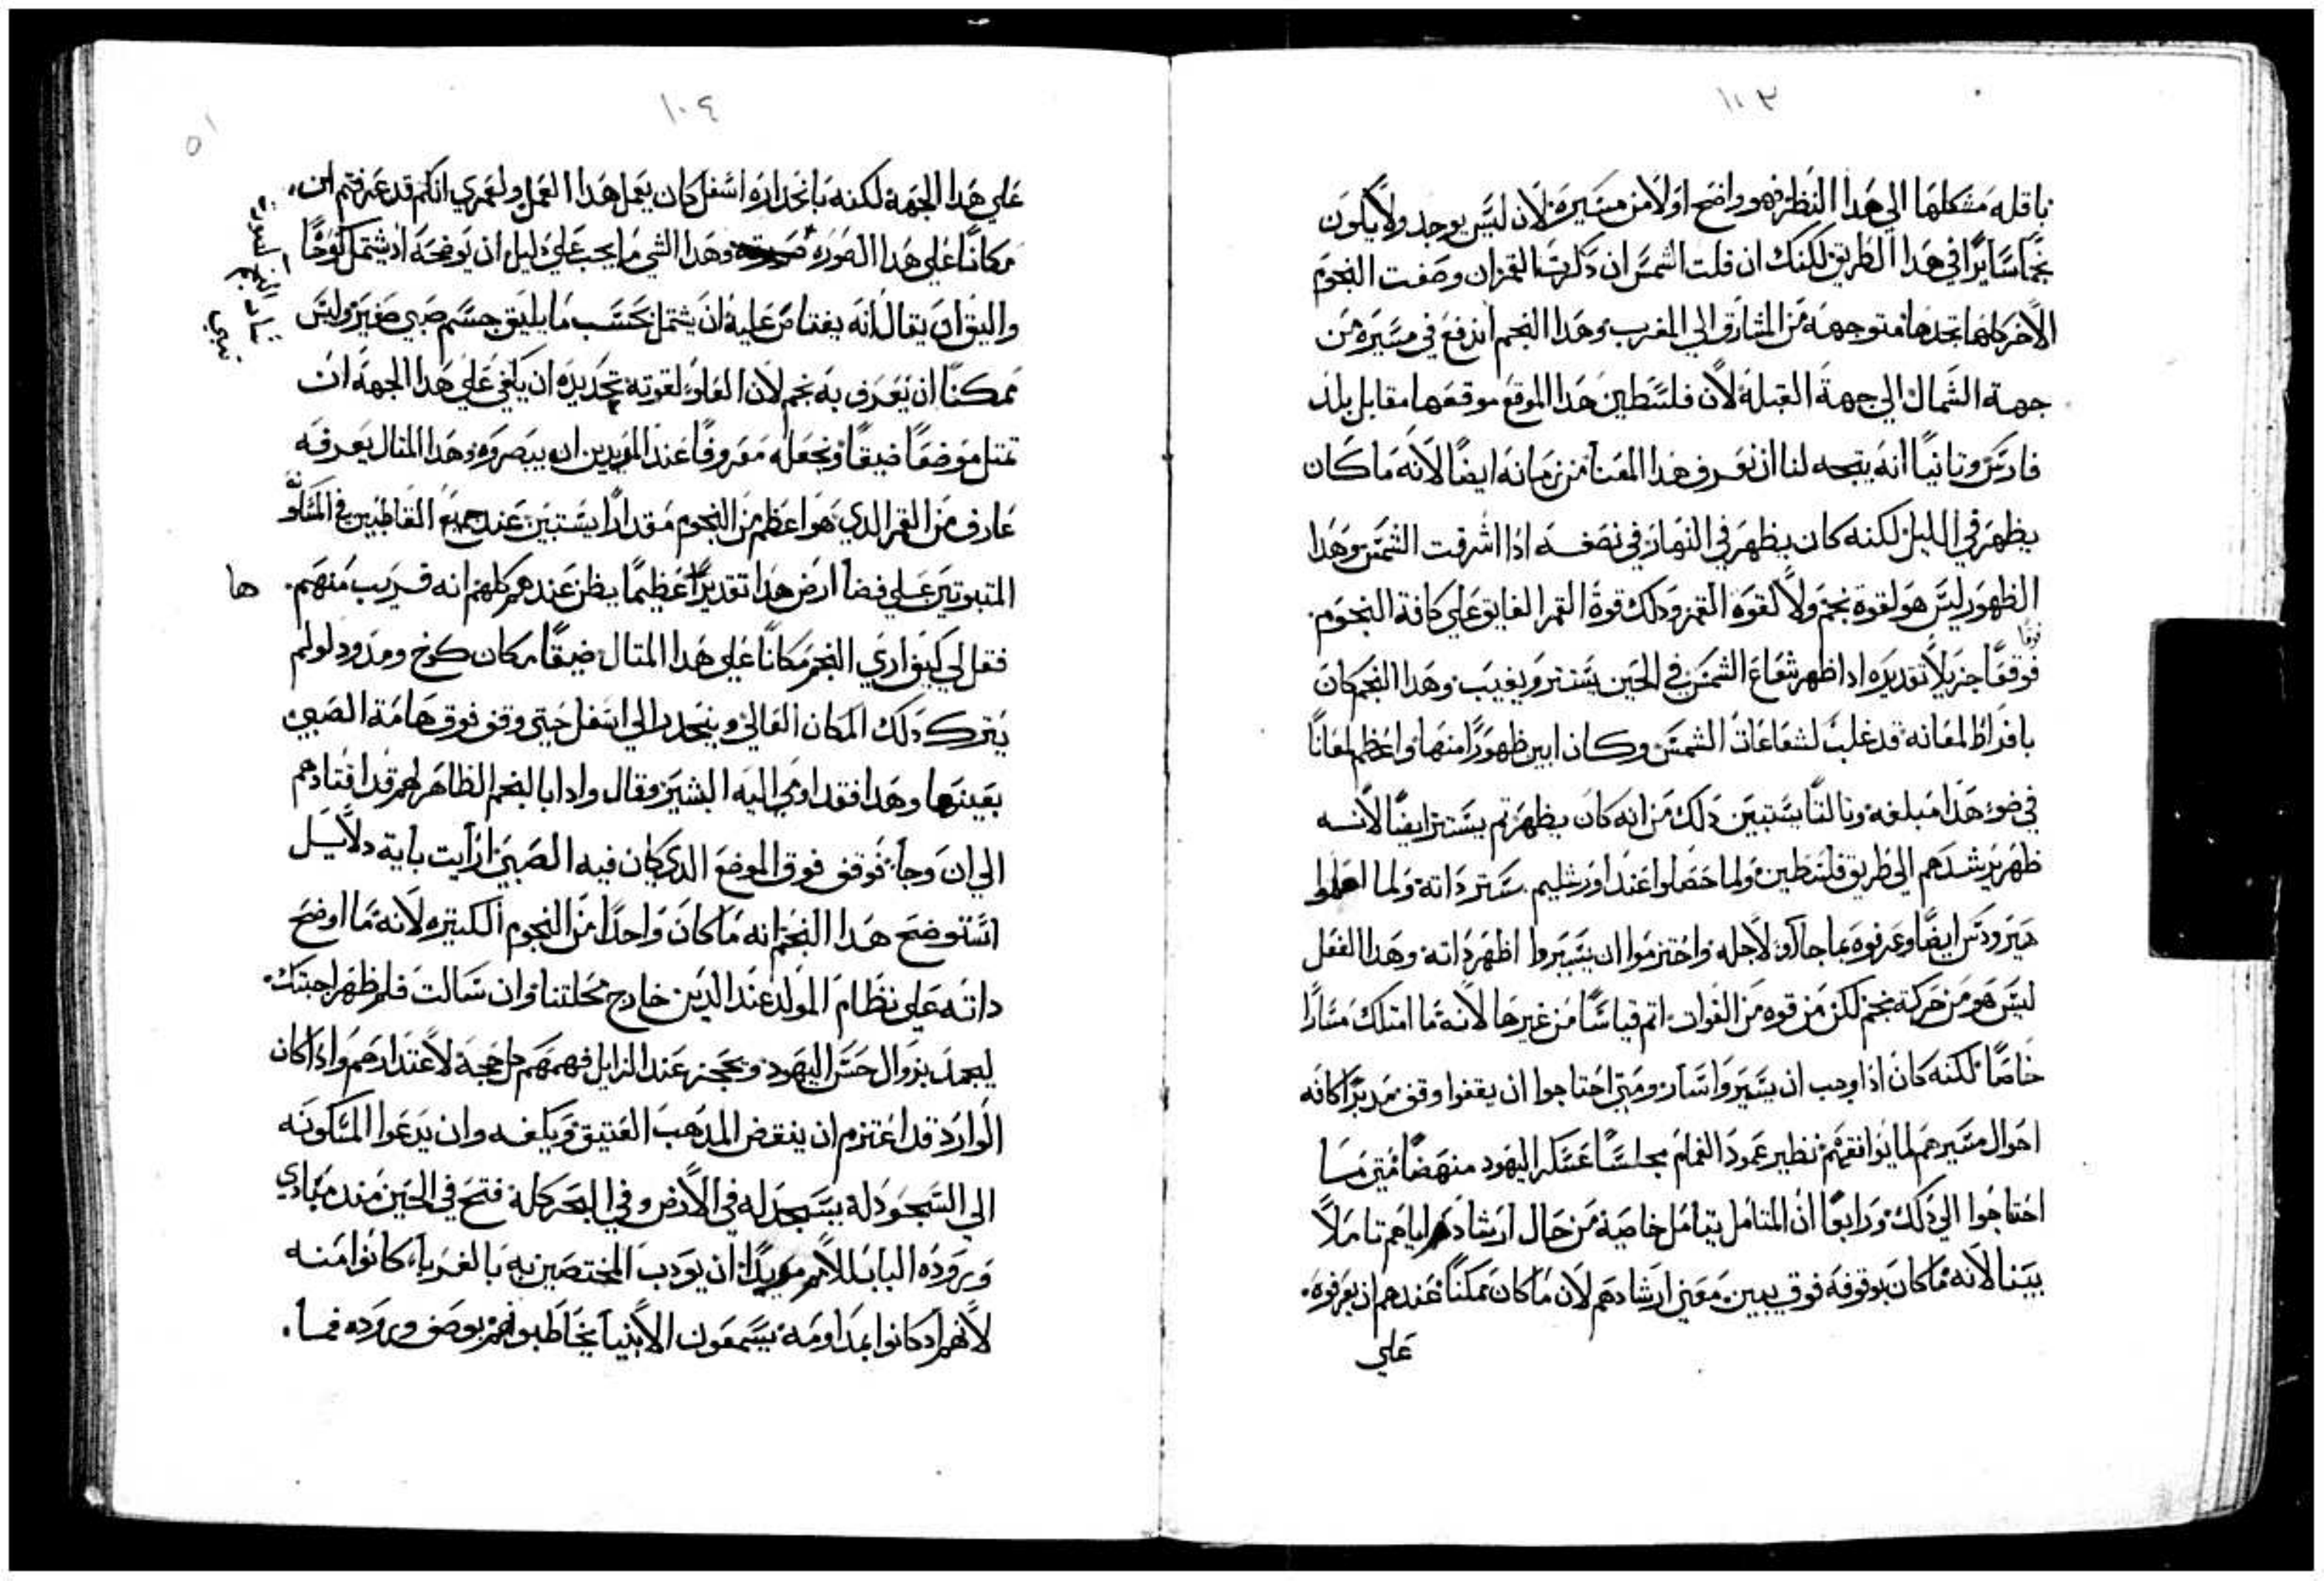 ١٠٣
باقله مشكلها الي هدا النظر فهو واضح اولا من مسيره لان ليس يوجد ولا يكون
نجما سايرا في هدا الطريق لكنك ان قلت الشمس ان دكرت القمر ان وصفت النجوم
الاخر كلها تجدها متوجهه من المشارق الي المغرب وهدا النجم اندفع في مسيره من
جهة الشمال الي جهة القبله لان فلسطين هدا الموقع موقعها مقابل بلد
فارس وتانيا انه يتجه لنا ان نعرف هدا المعنا من زمانه ايضا لانه ما كان
يظهر في الليل لكنه كان يظهر في النهار في نصفه ادا اشرقت الشمس وهدا
الظهور ليس هو لقوة نجم ولا لقوة القمر ودلك قوة القمر الفايق علي كافة النجوم
فوقا جزيلا تقديره ادا ظهر شعاع الشمس في الحين يستتر ويغيب وهدا النجم كان
بافراط لمعانه قد غلب لشعاعات الشمس وكان ابين ظهورا منها واعظم لمعانا
في ضوء هدا مبلغه وتالتا يستبين دلك من انه كان يظهر تم يستتر ايضا لانه
ظهر يرشدهم الي طريق فلسطين ولما حصلوا عند اورشليم ستر داته ولما اعلموا
هيرودس ايضا وعرفوه بما جاآوا لاجله واختزموا ان يسيروا اظهر داته وهدا الفعل
ليس هو من حركة نجم لكن من قوه من القوات اتم قياسا من غيرها لانه ما امتلك مسارا
خاصا لكنه كان ادا وجب ان يسيروا سار ومتي احتاجوا ان يقفوا وقف مدبرا كافه
احوال مسيرهم لما يوافقهم نظير عمود الغمام مجلسا عسكر اليهود منهضا متي ما
احتاجوا الي دلك ورابعا ان المتامل يتامل خاصية من حال ارشاده اياهم تاملا
بينا لانه ما كان بوقوفه فوق يبين معني ارشادهم لان ما كان ممكنا عندهم ان يعرفوه
علي
١٠٤
٥١
علي هدا الجهة لكنه بانحداره اسفل كان يعمل هدا العمل ولعمري انكم قد عرفتم ان
مكانا علي هدا الصوره وهدا الشي ما يجب علي دليل ان يوضحه اد يشتمل كوخا
واليق ان يقال انه يعتاص عليه ان يشتمل بحسب ما يليق جسم صبي صغير وليس
ممكنا ان يعرف به نجم لان العلو لقوته تحديده ان يكفي علي هدا الجهة ان
تمتل موضعا ضيقا ونجعله معروفا عند المريدين ان يبصروه وهدا المتال يعرفه
عارف من القمر الدي هو اعظم من النجوم مقدارا يستبين عند جميع القاطبين في المسكونه
المتبوتين علي فضا ارض هدا تقديرا عظيما يظن عندهم كلهم انه قريب منهم ها
فقل لي كيف اري النجم مكانا علي هدا المتال ضيقا مكان كوخ ومدود لو لم
يترك دلك المكان العالي وينحدر الي اسفل حتي وقف فوق هامة الصبي
بعينها وهدا فقد اومي اليه البشير وقال وادا بالنجم الظاهر لهم قد اقتادهم
الي ان وجا فوقف فوق الموضع الدي كان فيه الصبي ارايت بأية دلايل
استوضح هدا النجم انه ما كان واحدا من النجوم الكتيره لانه ما اوضح
داته علي نظام المولد عند الدين خارج محلتنا وان سالت فلم ظهر اجبتك
ليجمد بزوال حس اليهود ويحجز عند الزايل فهمهم كل حجة لاعتدارهم وادا كان
الوارد قد اعتزم ان ينقض المدهب العتيق ويكلفه وان يدعوا المسكونه
الي السجود له يسجد له في الارض وفي البحر كله فتح في الحين مند مبادي
وروده الباب للامم مريدا ان يودب المختصين به بالغربا كانوا منه
لانهم اد كانوا بمداومة يسمعون الانبيا يخاطبونهم بوصف وروده فما